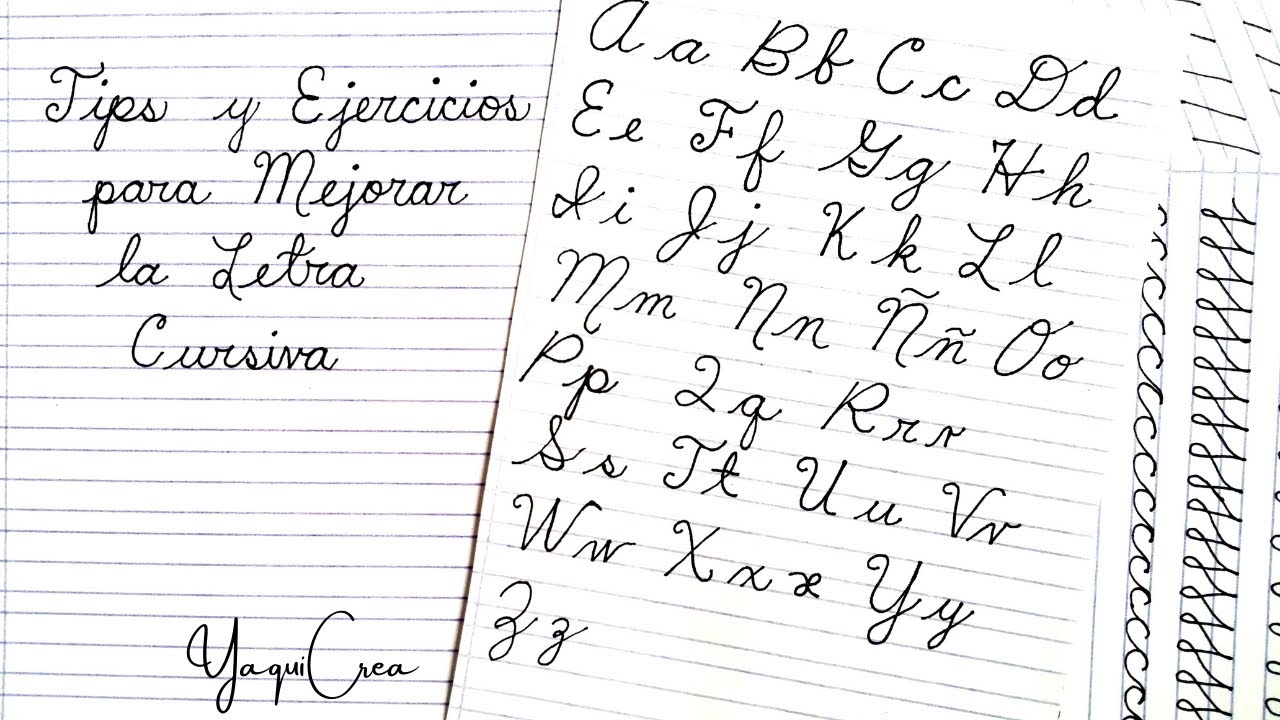 Tips y Ejercicios
para Mejorar
la Letra
Cursiva
YaquiCrea
A a B b C c D d
E e F f G g H h
I i J j K k L l
M m N n Ñ ñ O o
P p Q q R r r
S s T t U u V v
W w X x x Y y
Z z